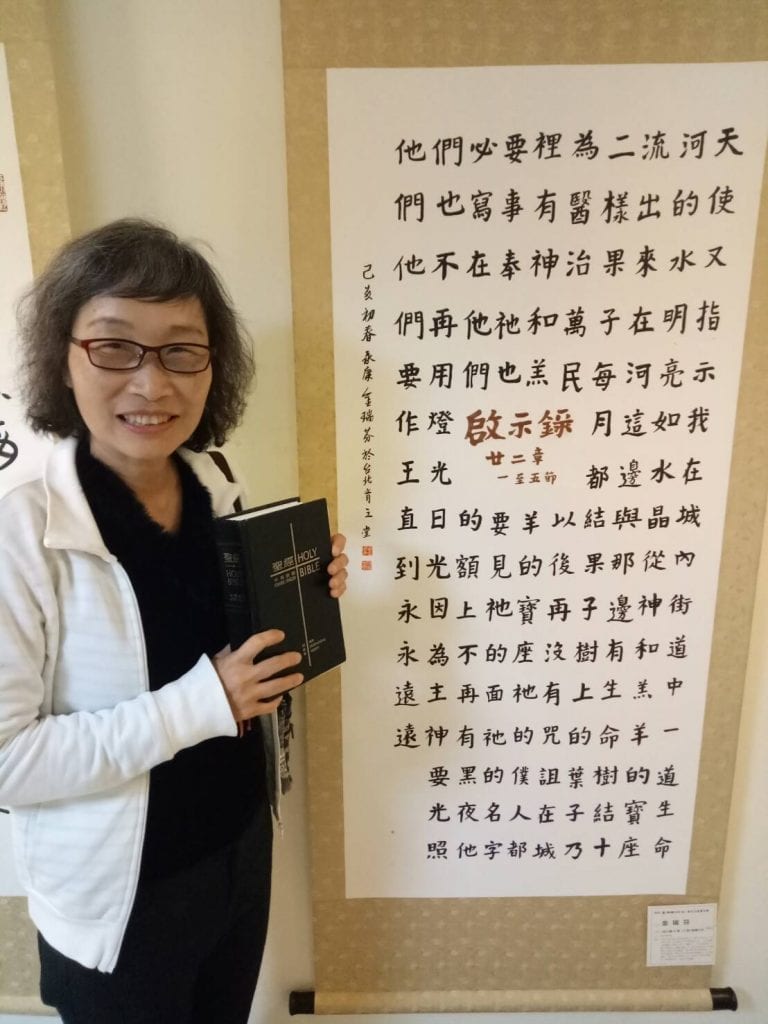 天使又指示我在城內街道中一道生命
河的水明亮如水晶從神和羔羊的寶座
流出來在河這邊與那邊有生命樹結十
二樣果子每月都結果子樹上的葉子乃
為醫治萬民以後再沒有咒詛在城
裡有神和羔羊的寶座祂的僕人都
要事奉祂也要見祂的面祂的名字
必寫在他們的額上不再有黑夜他
們也不再用燈光日光因為主神要光照
他們他們要作王直到永永遠遠
啟示錄
廿二章
一至五節
己亥初春永康金瑞芬於台北肯立堂
聖經
HOLY
BIBLE
聖經
HOLY
BIBLE
金瑞芬